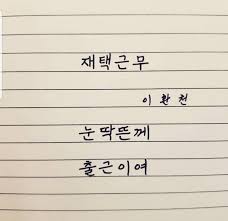 재택근무
이환천
눈딱뜬께
출근이여